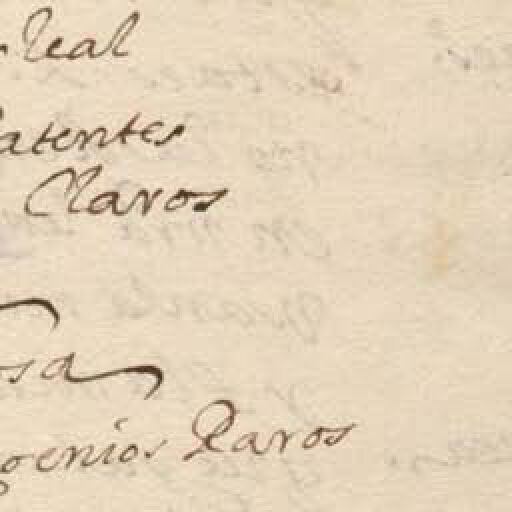 leal
Patentes
Claros
osa
genios Raros